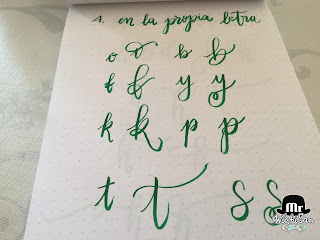 4. en la propia letra
o o b b
f f y y
k k p p
t t s s
Mr